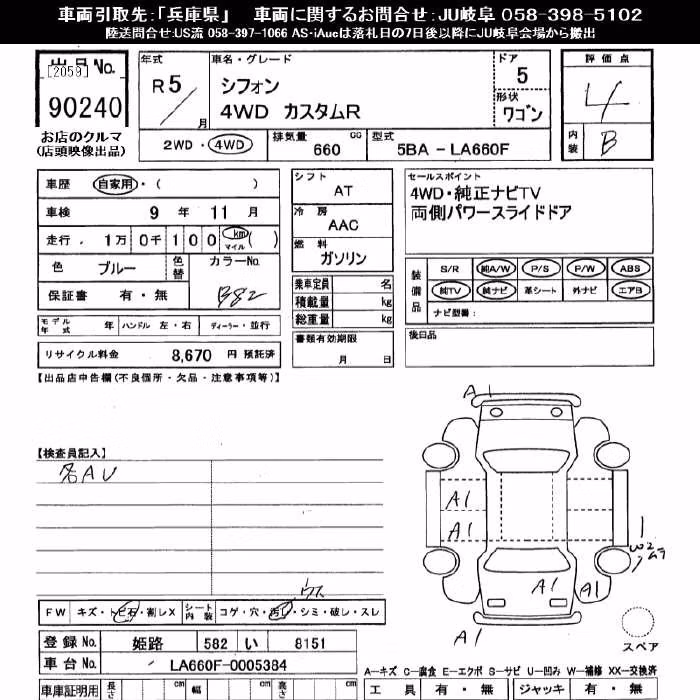 車両引取先：「兵庫県」　車両に関するお問合せ：JU岐阜 058-398-5102
陸送問合せ:US流 058-397-1066 AS-iAucは落札日の7日後以降にJU岐阜会場から搬出
出品No.
[2059]
90240
お店のクルマ
(店頭映像出品)
年式
R5
月
車名・グレード
シフォン
4WD カスタムR
ドア
5
形状
ワゴン
評価点
4
内装
B
2WD・4WD
排気量
CC
660
型式
5BA - LA660F
車歴
自家用・（　　）
車検
9 年 11 月
走行
1万 0千 1 0 0 km マイル ( )
色
ブルー
色替
カラーNo.
B82
保証書 有・無
モデル年式 年 ハンドル 左・右 ディーラー・並行
リサイクル料金 8,670 円 預託済
シフト
AT
冷房
AAC
燃料
ガソリン
乗車定員 名
積載量 kg
総重量 kg
書類有効期限
月 日
セールスポイント
4WD・純正ナビTV
両側パワースライドドア
装備品
S/R 純A/W P/S P/W ABS
純TV 純ナビ 革シート 外ナビ エアB
ナビ型番：
後日品
【出品店申告欄(不良個所・欠品・注意事項等)】
【検査員記入】
各AU
A1
A1
A1
A1
A1
A1
W2
ムラ
スペア
ウス
FW キズ・トビ石・割レX シート内装 コゲ・穴・汚レ・シミ・破レ・スレ
登録No. 姫路 582 い 8151
車台No. LA660F-0005384
車庫証明用 長さ cm 幅 cm 高さ cm
A-キズ C-腐食 E-エクボ S-サビ U-凹み W-補修 XX-交換済
工具 有・無 ジャッキ 有・無